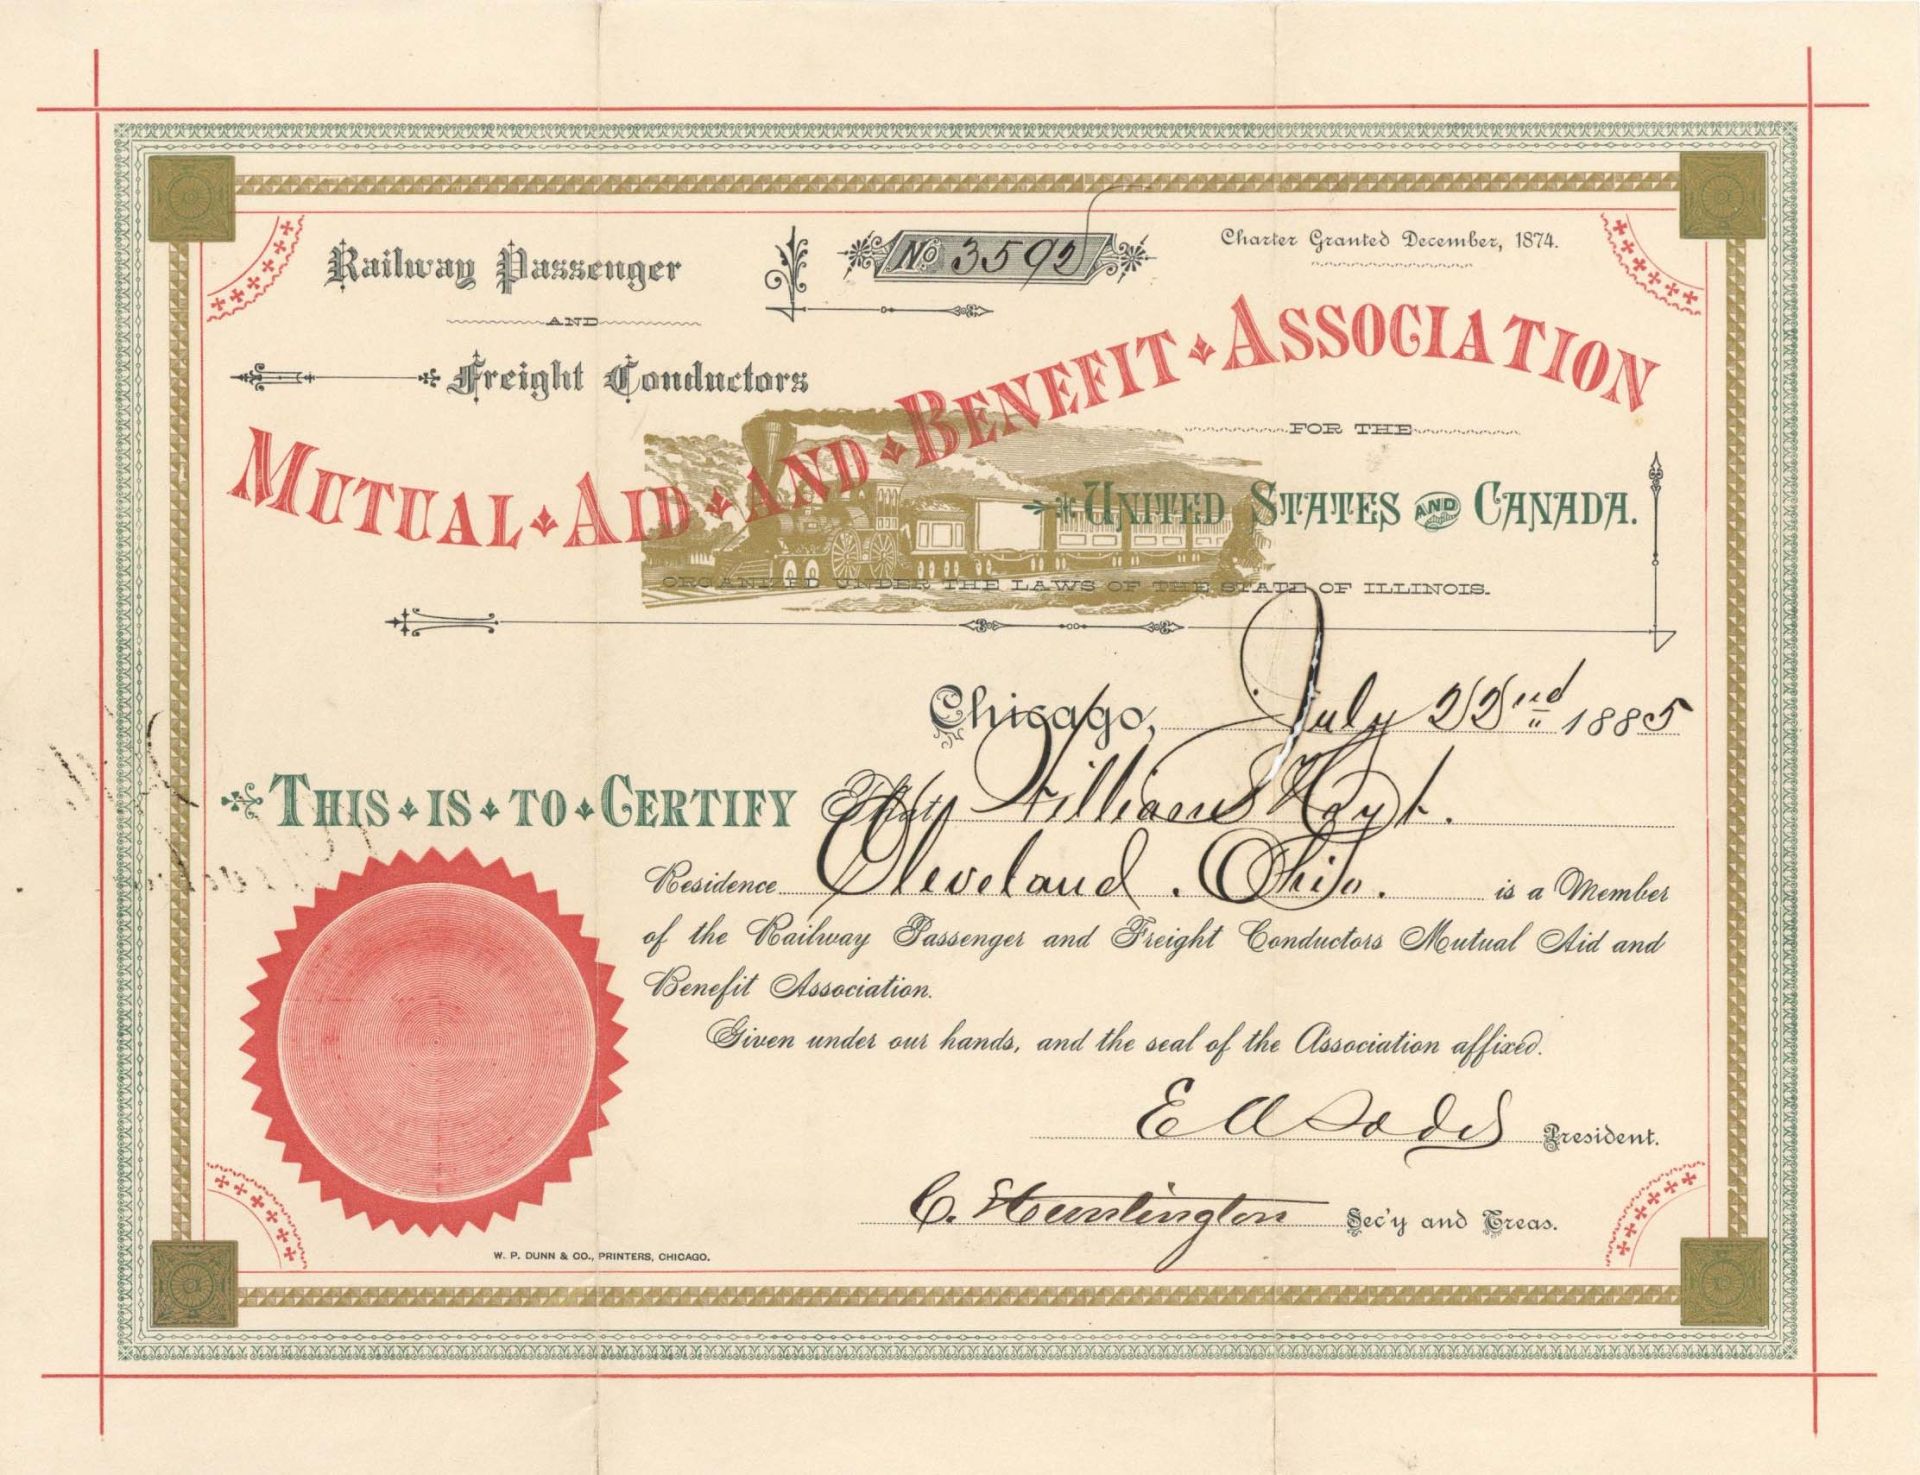 Railway Passenger
AND
Freight Conductors
No 3592
Charter Granted December, 1874.
MUTUAL AID AND BENEFIT ASSOCIATION
FOR THE
UNITED STATES AND CANADA.
ORGANIZED UNDER THE LAWS OF THE STATE OF ILLINOIS.
Chicago, July 22nd 1885
THIS IS TO CERTIFY That William S Hoyt.
Residence Cleveland. Ohio. is a Member
of the Railway Passenger and Freight Conductors Mutual Aid and
Benefit Association.
Given under our hands, and the seal of the Association affixed.
E A Sadd President.
C. Huntington Sec'y and Treas.
W. P. DUNN & CO., PRINTERS, CHICAGO.